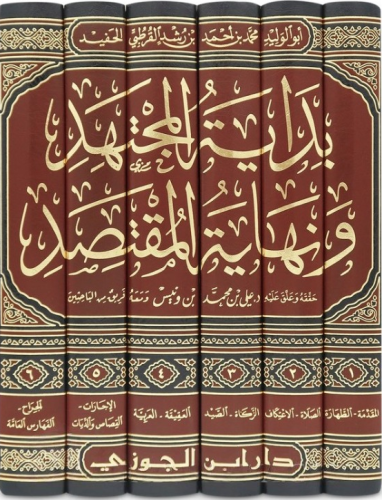 أبو الوليد محمد بن أحمد بن رشد القرطبي الحفيد
بداية المجتهد
ونهاية المقتصد
حققه وعلق عليه د. علي بن محمد بن ونيس ومعه فريق من الباحثين
١ ٢ ٣ ٤ ٥ ٦
المقدمة - الطهارة
الصلاة - الاعتكاف
الزكاة - الصيد
العقيقة - العرية
الإجارات - القصاص والديات
الجراح - الفهارس العامة
دار ابن الجوزي